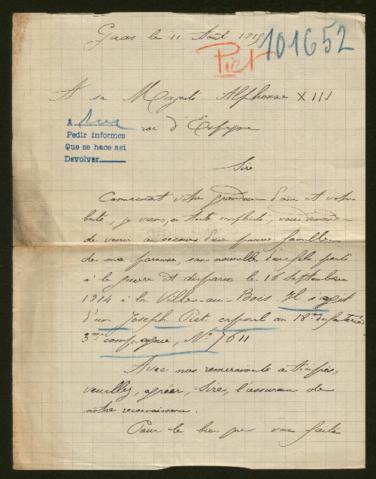 Gaas le 11 Août 1915
Piet 101652
A sa Majesté Alphonse XIII
roi d'Espagne
A
Pedir informes
Que se hace asi
Devolver
Sire
Connaissant votre grandeur d'âme et votre
bonté, je viens, en toute simplicité, vous demander
de venir au secours d'une pauvre famille
de ma paroisse, sans nouvelle d'un fils parti
à la guerre et disparu le 16 septembre
1914 à la Ville-au-Bois. Il s'agit
d'un Joseph Piet caporal au 18me d'infanterie
3me compagnie, No 7611
Avec nos remerciements anticipés,
veuillez, agréer, Sire, l'assurance de
notre reconnaissance.
Pour le bien que vous faites